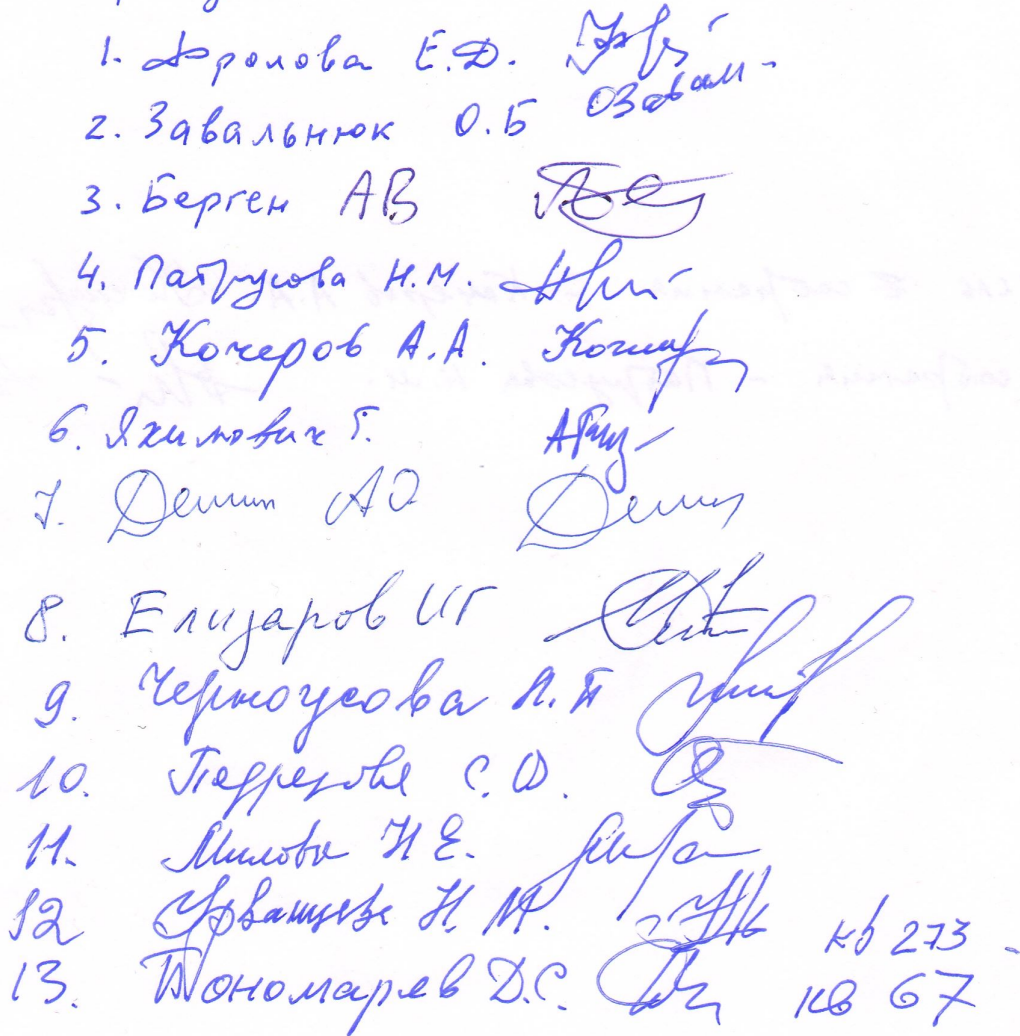 1. Фролова Е.Д.
2. Завальнюк О.Б ОЗавал-
3. Берген АВ
4. Патрусова Н.М.
5. Кочеров А.А. Кочер
6. Яхимович Г.
7. Демин АО Деми
8. Елизаров ИГ
9. Черноусова А.П
10. С.Ф.
11. Милова Н Е.
12 Урванцева Н. М. кв 273
13. Пономарев Д.С. кв 67